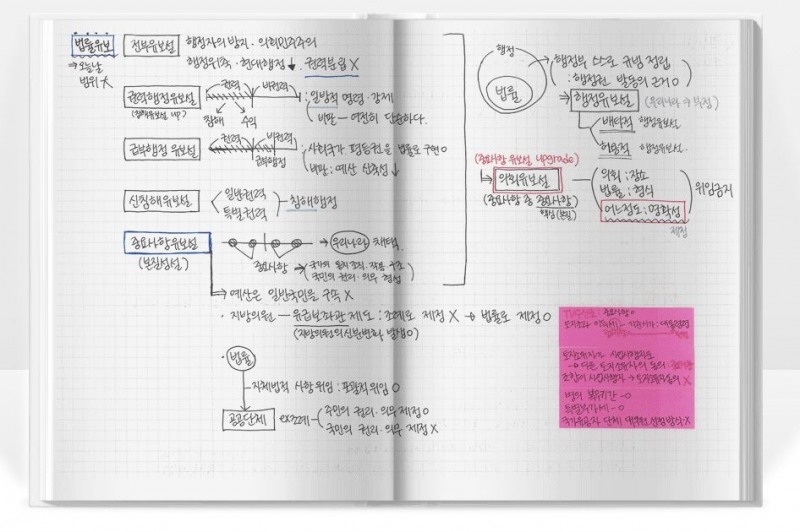 법률유보
⇒ 오늘날
범위 大
전부유보설
행정자의 방지 · 의회민주주의
행정위축 · 현대행정 ↓ 권력분립 X
권력행정유보설
(침해유보설 up)
권력 비권력
침해 수익
: 일방적 명령 · 강제
비판 — 여전히 단순하다.
급부행정 유보설
권력 비권력
급부행정
: 사회국가 평등권을 법률로 구현 O
비판 : 예산 신축성 ↓
신침해유보설
일반권력
특별권력
침해행정
중요사항유보설
(본질성설)
우리나라 채택
중요사항
국가의 통치조직 · 작용 구조
국민의 권리 · 의무 형성
→ 예산은 일반국민을 구속 X
· 지방의원 — 유급보좌관 제도 : 조례로 제정 X → 법률로 제정 O
(지방의원의 신분변화 발생 O)
· 법률
자치법적 사항 위임 : 포괄적위임 O
공공단체
ex 조례
주민의 권리 · 의무 제정 O
국민의 권리 · 의무 제정 X
행정
법률
행정부 스스로 규범 정립
: 행정권 발동의 근거 O
⇒ 행정유보설
배타적 행정유보설
허용적 행정유보설
(중요사항 유보설 upgrade)
의회유보설
(중요사항 중 중요사항)
핵심 (본질)
의회 : 장소
법률 : 형식
어느정도 : 명확성
위임금지
제정
중요사항 O
토지소유자가 사업시행자로
→ 다른 토지소유자의 동의
조합이 사업시행자 → 토지소유자동의 X
병의 복무기간 → O
국가유공자 단체 대의원 선정방식 X